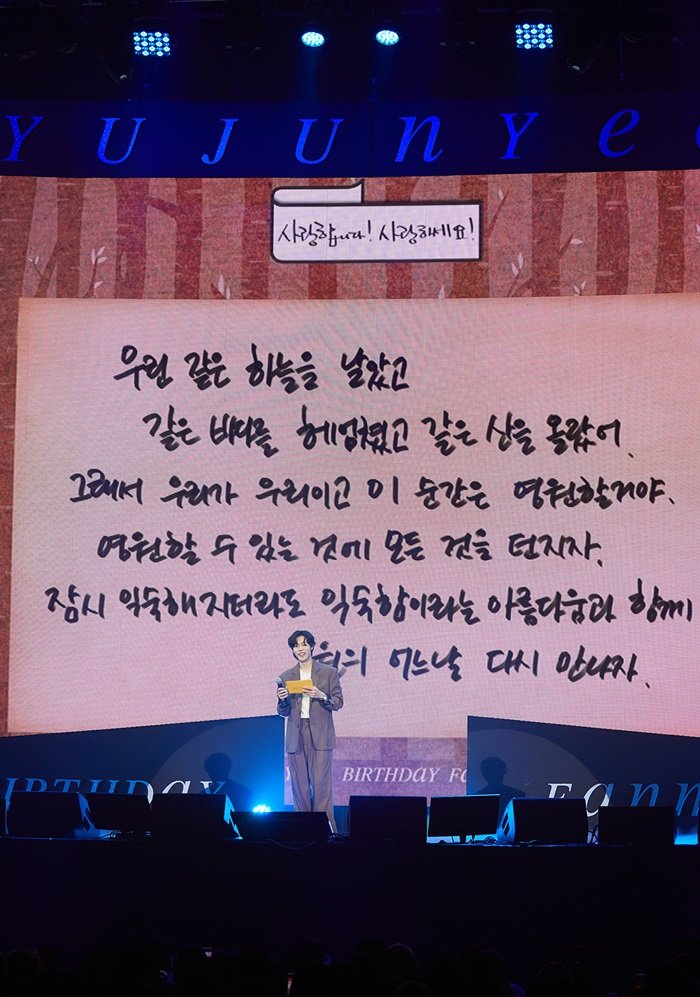 YUJUNYe
사랑합니다! 사랑하세요!
우린 같은 하늘을 날았고
같은 바다를 헤엄쳤고 같은 산을 올랐어.
그래서 우리가 우리이고 이 순간은 영원할거야.
영원할 수 있는 것에 모든 것을 던지자.
잠시 익숙해지더라도 익숙함이라는 아름다움과 함께
어느날 다시 만나자.
BIRTHDAY
BIRTHDAY Fa
Fann